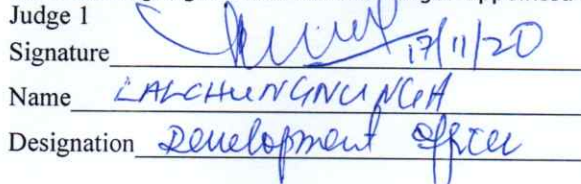 Judge 1
Signature 17/11/20
Name LALCHUNGNUNGA
Designation Development Officer